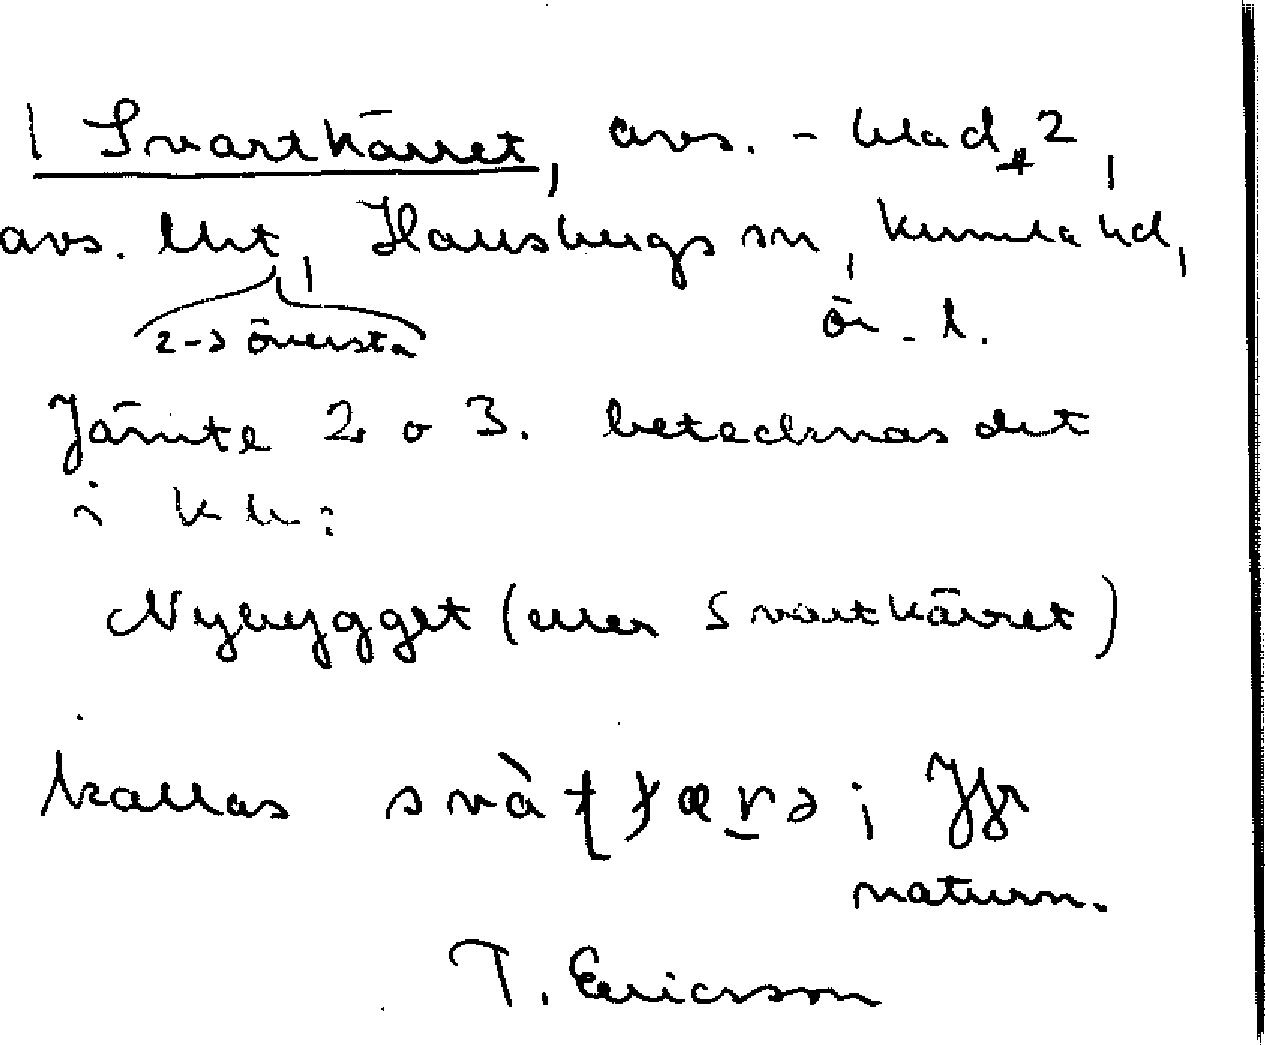 1 Svartkärret, avs. - blad 2,
avs. lht, Hallsbergs sn, Kumla hd,
2-3 översta
ör. l.
Jämte 2 o 3. betecknas det
i kb:
Nybygget (eller Svartkärret)
kallas svàʈʈærə; Jfr
naturn.
T. Ericsson